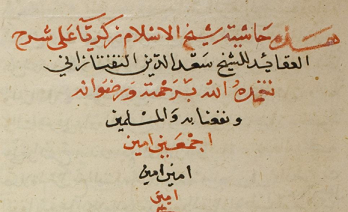 هذه حاشية شيخ الاسلام زكريا على شرح
العقائد للشيخ سعد الدين التفتازاني
تغمده الله برحمته ورضوانه
ونفعنا به والمسلمين
اجمعين امين
امين امين
امين